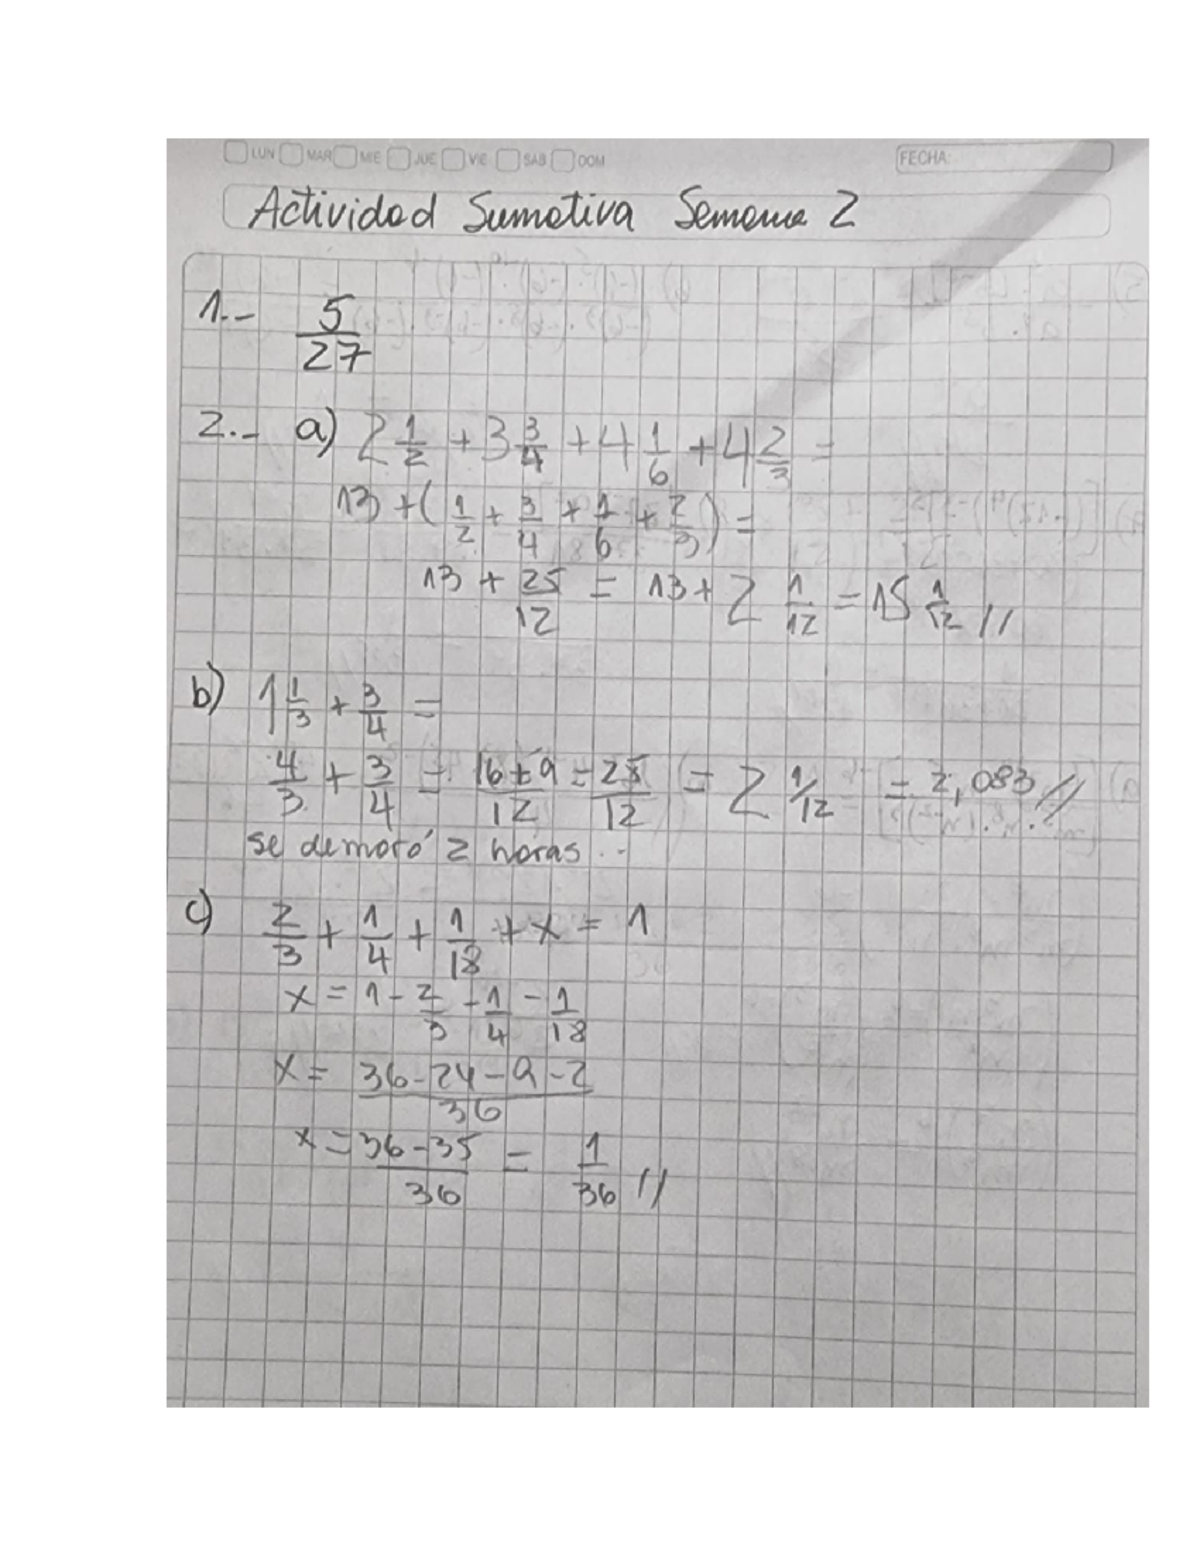 LUN MAR MIE JUE VIE SAB DOM FECHA:
Actividad Sumativa Semana 2
1.- 5/27
2.- a) 2 1/2 + 3 3/4 + 4 1/6 + 4 2/3 =
13 + (1/2 + 3/4 + 1/6 + 2/3) =
13 + 25/12 = 13 + 2 1/12 = 15 1/12 //
b) 1 1/3 + 3/4 =
4/3 + 3/4 = 16+9/12 = 25/12 = 2 1/12 = 2,083 //
se demoró 2 horas..
c) 2/3 + 1/4 + 1/18 + x = 1
x = 1 - 2/3 - 1/4 - 1/18
x = 36-24-9-2/36
x = 36-35/36 = 1/36 //